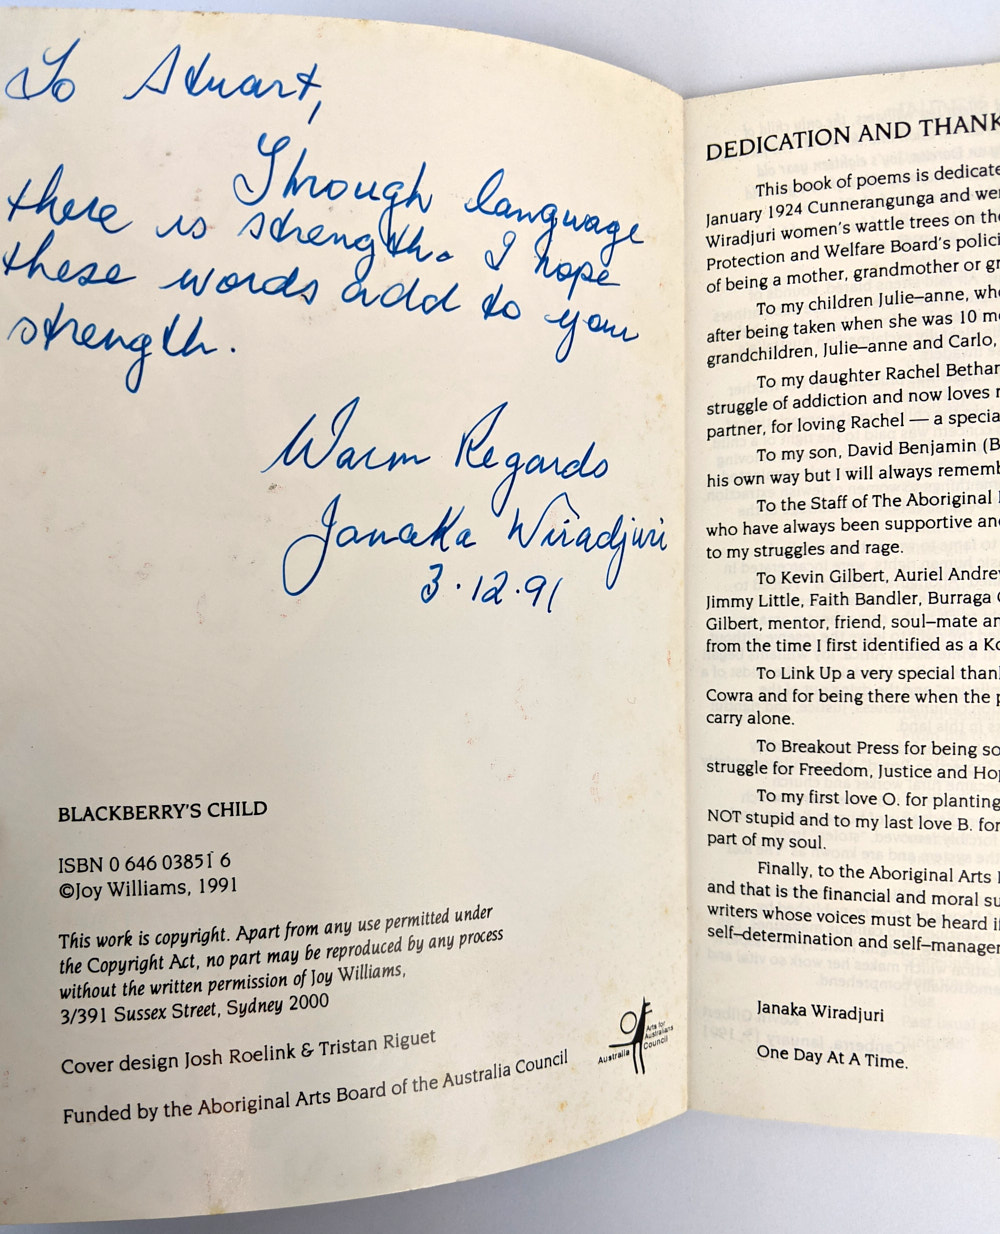 To Stuart,
Through language
there is strength. I hope
these words add to your
strength.
Warm Regards
Janaka Wiradjuri
3.12.91
BLACKBERRY'S CHILD
ISBN 0 646 03851 6
©Joy Williams, 1991
This work is copyright. Apart from any use permitted under
the Copyright Act, no part may be reproduced by any process
without the written permission of Joy Williams,
3/391 Sussex Street, Sydney 2000
Cover design Josh Roelink & Tristan Riguet
Funded by the Aboriginal Arts Board of the Australia Council
Arts for
Australians
Australia Council
DEDICATION AND THANK
This book of poems is dedicate
January 1924 Cunnerangunga and wer
Wiradjuri women's wattle trees on the
Protection and Welfare Board's polici
of being a mother, grandmother or gr
To my children Julie–anne, who
after being taken when she was 10 mo
grandchildren, Julie–anne and Carlo,
To my daughter Rachel Bethar
struggle of addiction and now loves
partner, for loving Rachel — a specia
To my son, David Benjamin (B
his own way but I will always rememb
To the Staff of The Aboriginal
who have always been supportive and
to my struggles and rage.
To Kevin Gilbert, Auriel Andrew
Jimmy Little, Faith Bandler, Burraga
Gilbert, mentor, friend, soul–mate an
from the time I first identified as a Ko
To Link Up a very special than
Cowra and for being there when the p
carry alone.
To Breakout Press for being so
struggle for Freedom, Justice and Hop
To my first love O. for planting
NOT stupid and to my last love B. for
part of my soul.
Finally, to the Aboriginal Arts
and that is the financial and moral su
writers whose voices must be heard if
self–determination and self–manager
Janaka Wiradjuri
One Day At A Time.